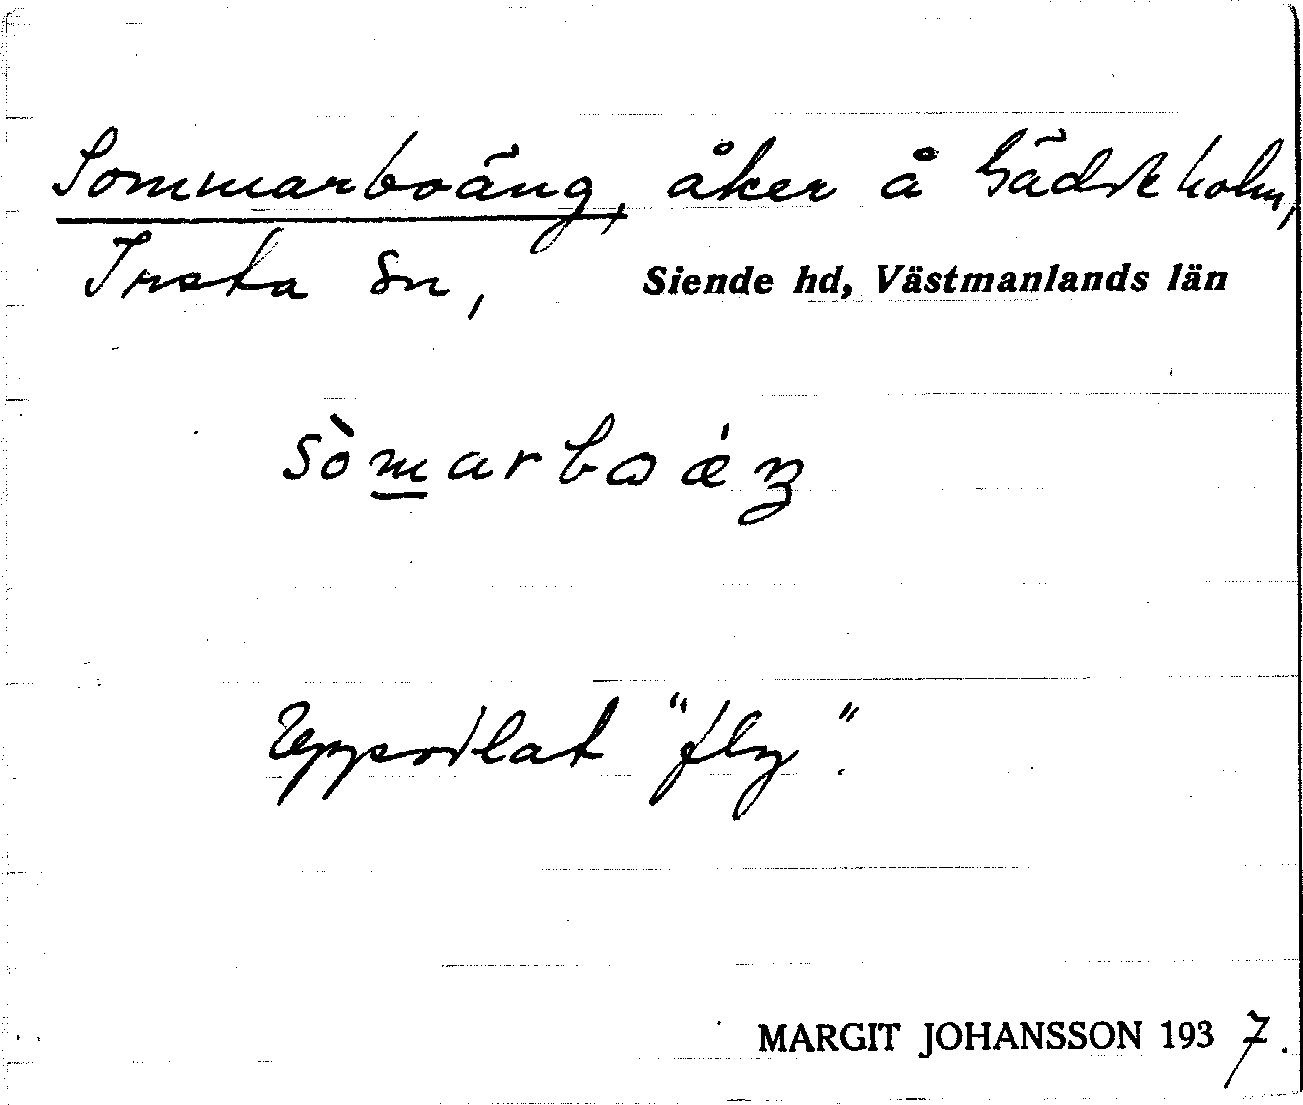 Sommarboäng, åker å Gäddeholm,
Irsta sn, Siende hd, Västmanlands län
sòmarboǽŋ
Uppodlat "fly".
MARGIT JOHANSSON 1937.